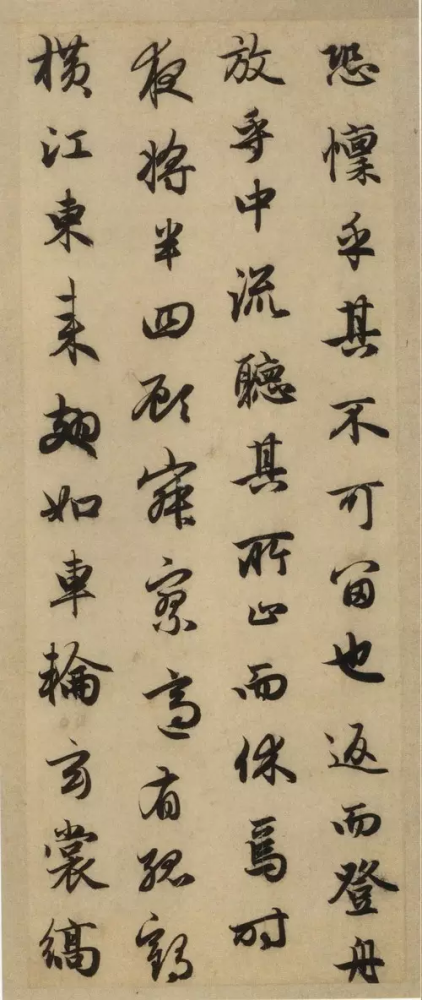 恐懔乎其不可留也返而登舟
放乎中流聽其所止而休焉时
夜將半四顾寂寥適有孤鶴
橫江東来翅如車輪玄裳縞